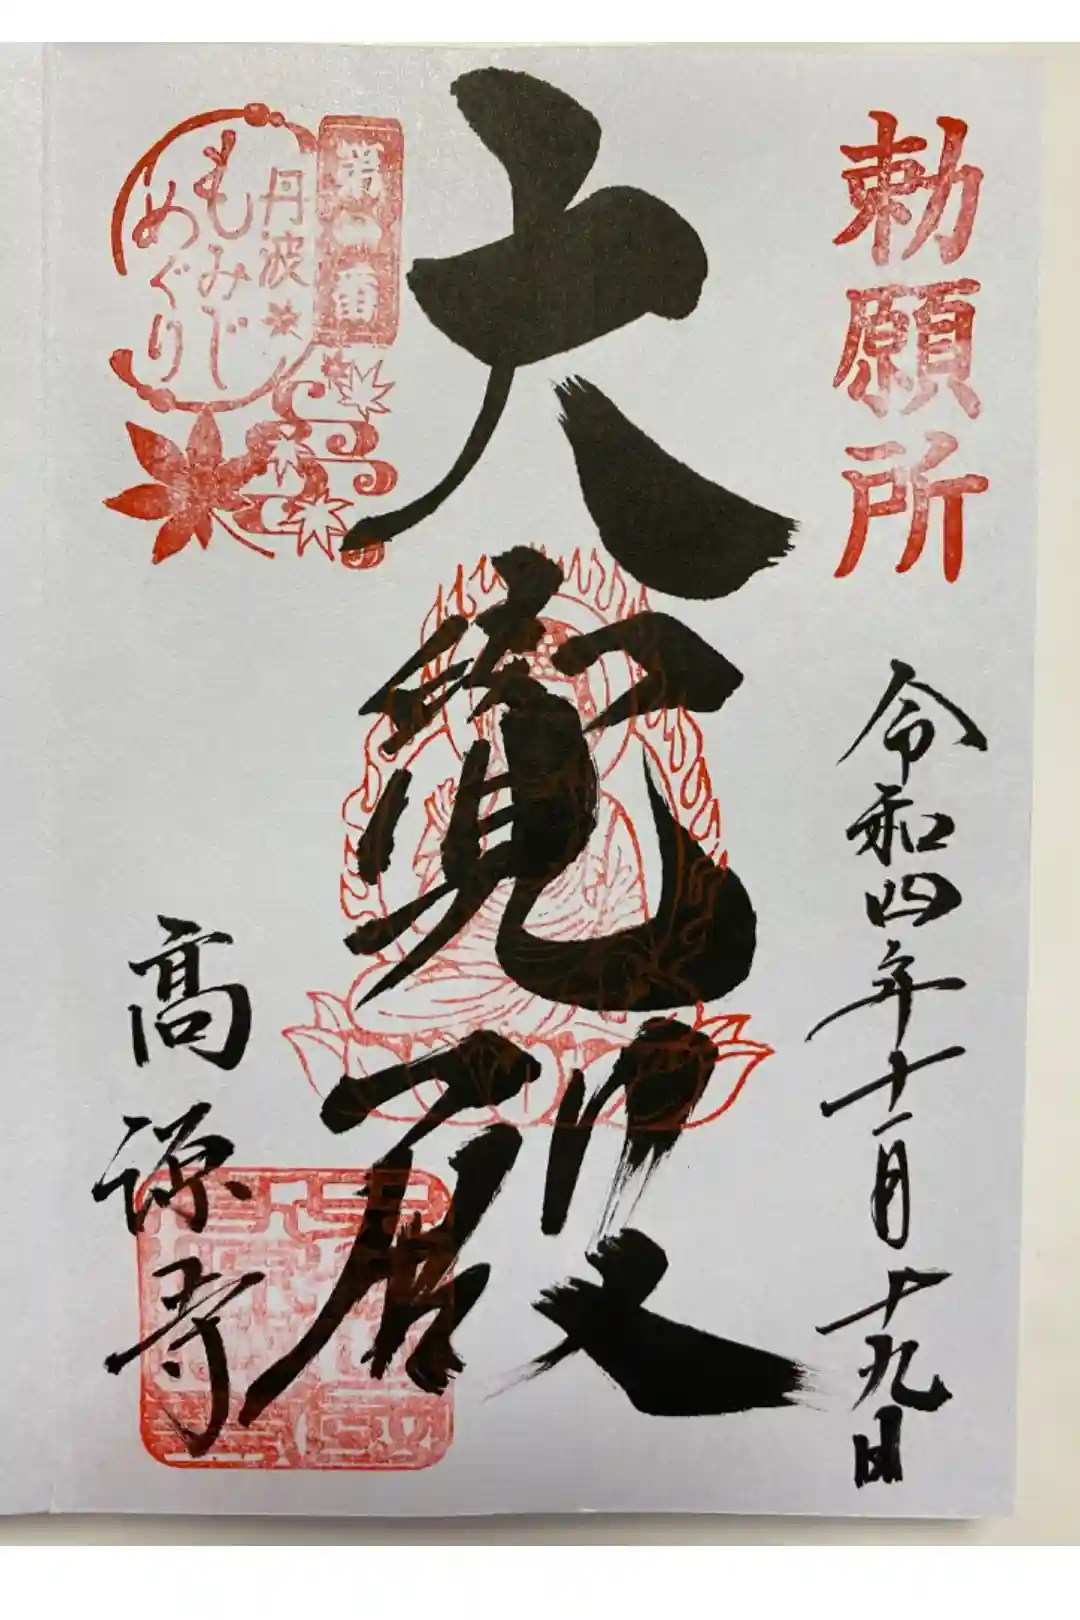 勅願所
令和四年十一月十九日
大覚殿
第一番
丹波
もみじ
めぐり
高源寺